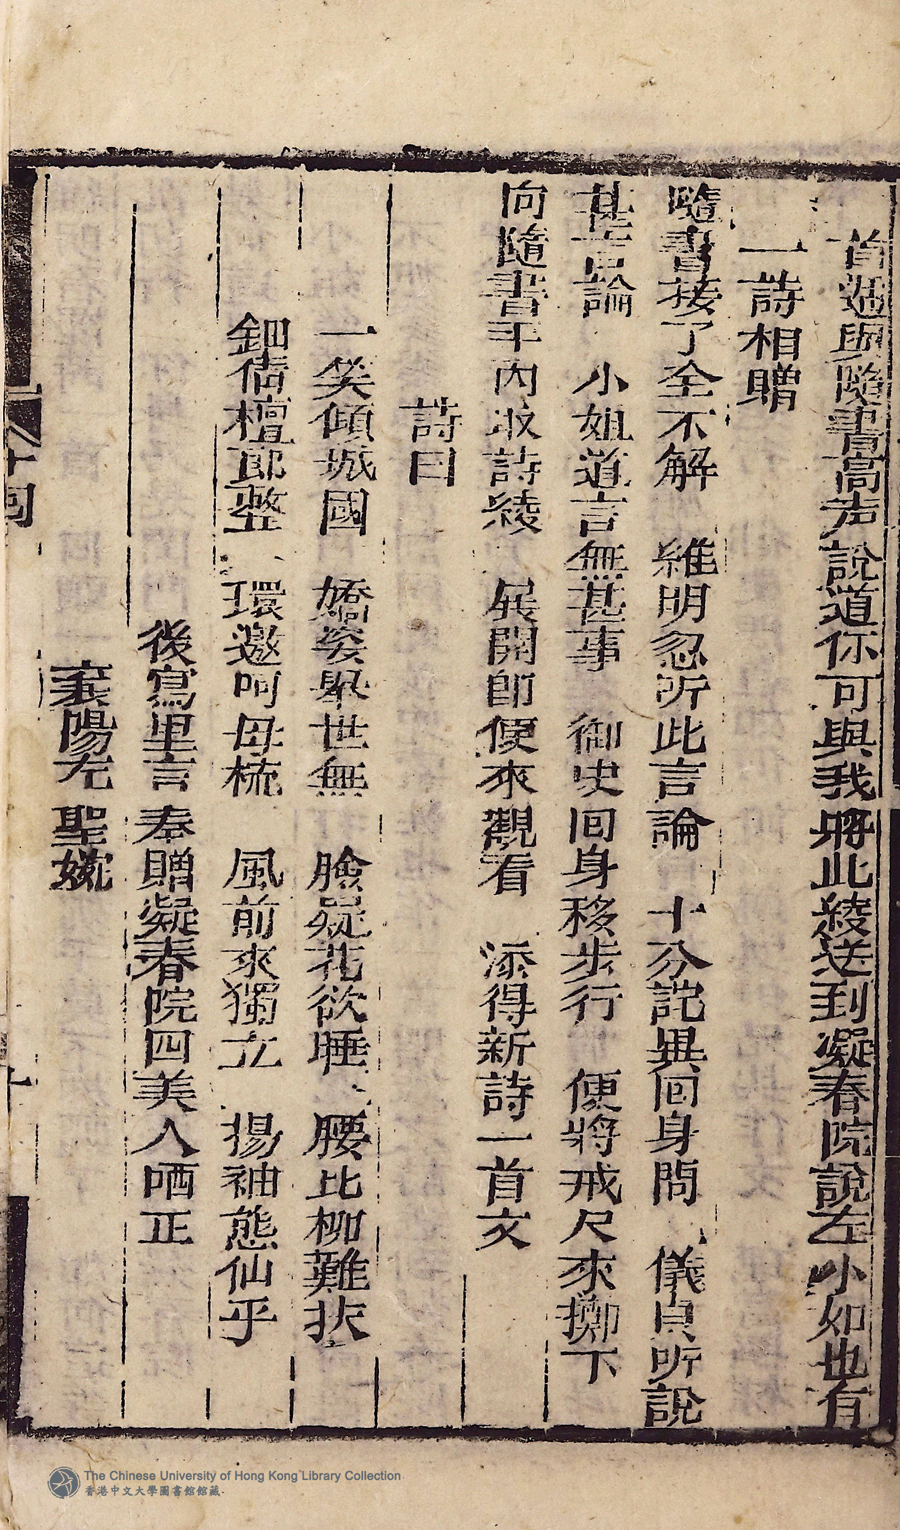 首遞與隨書高声說道你可與我將此綾送到凝春院說左小如也有
一詩相贈
隨書接了全不解 維明忽听此言論 十分詫異回身問 儀貞听說
甚言論 小姐道言無甚事 御史回身移步行 便將戒尺來擲下
向隨書手內取詩綾 展開即便來觀看 添得新詩一首文
詩曰
一笑傾城國 嬌姿舉世無 臉凝花欲睡 腰比柳難扶
鈿倩檀郎整 環邀呵母梳 風前來獨立 揚袖態仙乎
後寫里言奉贈凝春院四美人哂正
襄陽左 聖婉
十四
The Chinese University of Hong Kong Library Collection
香港中文大學圖書館館藏